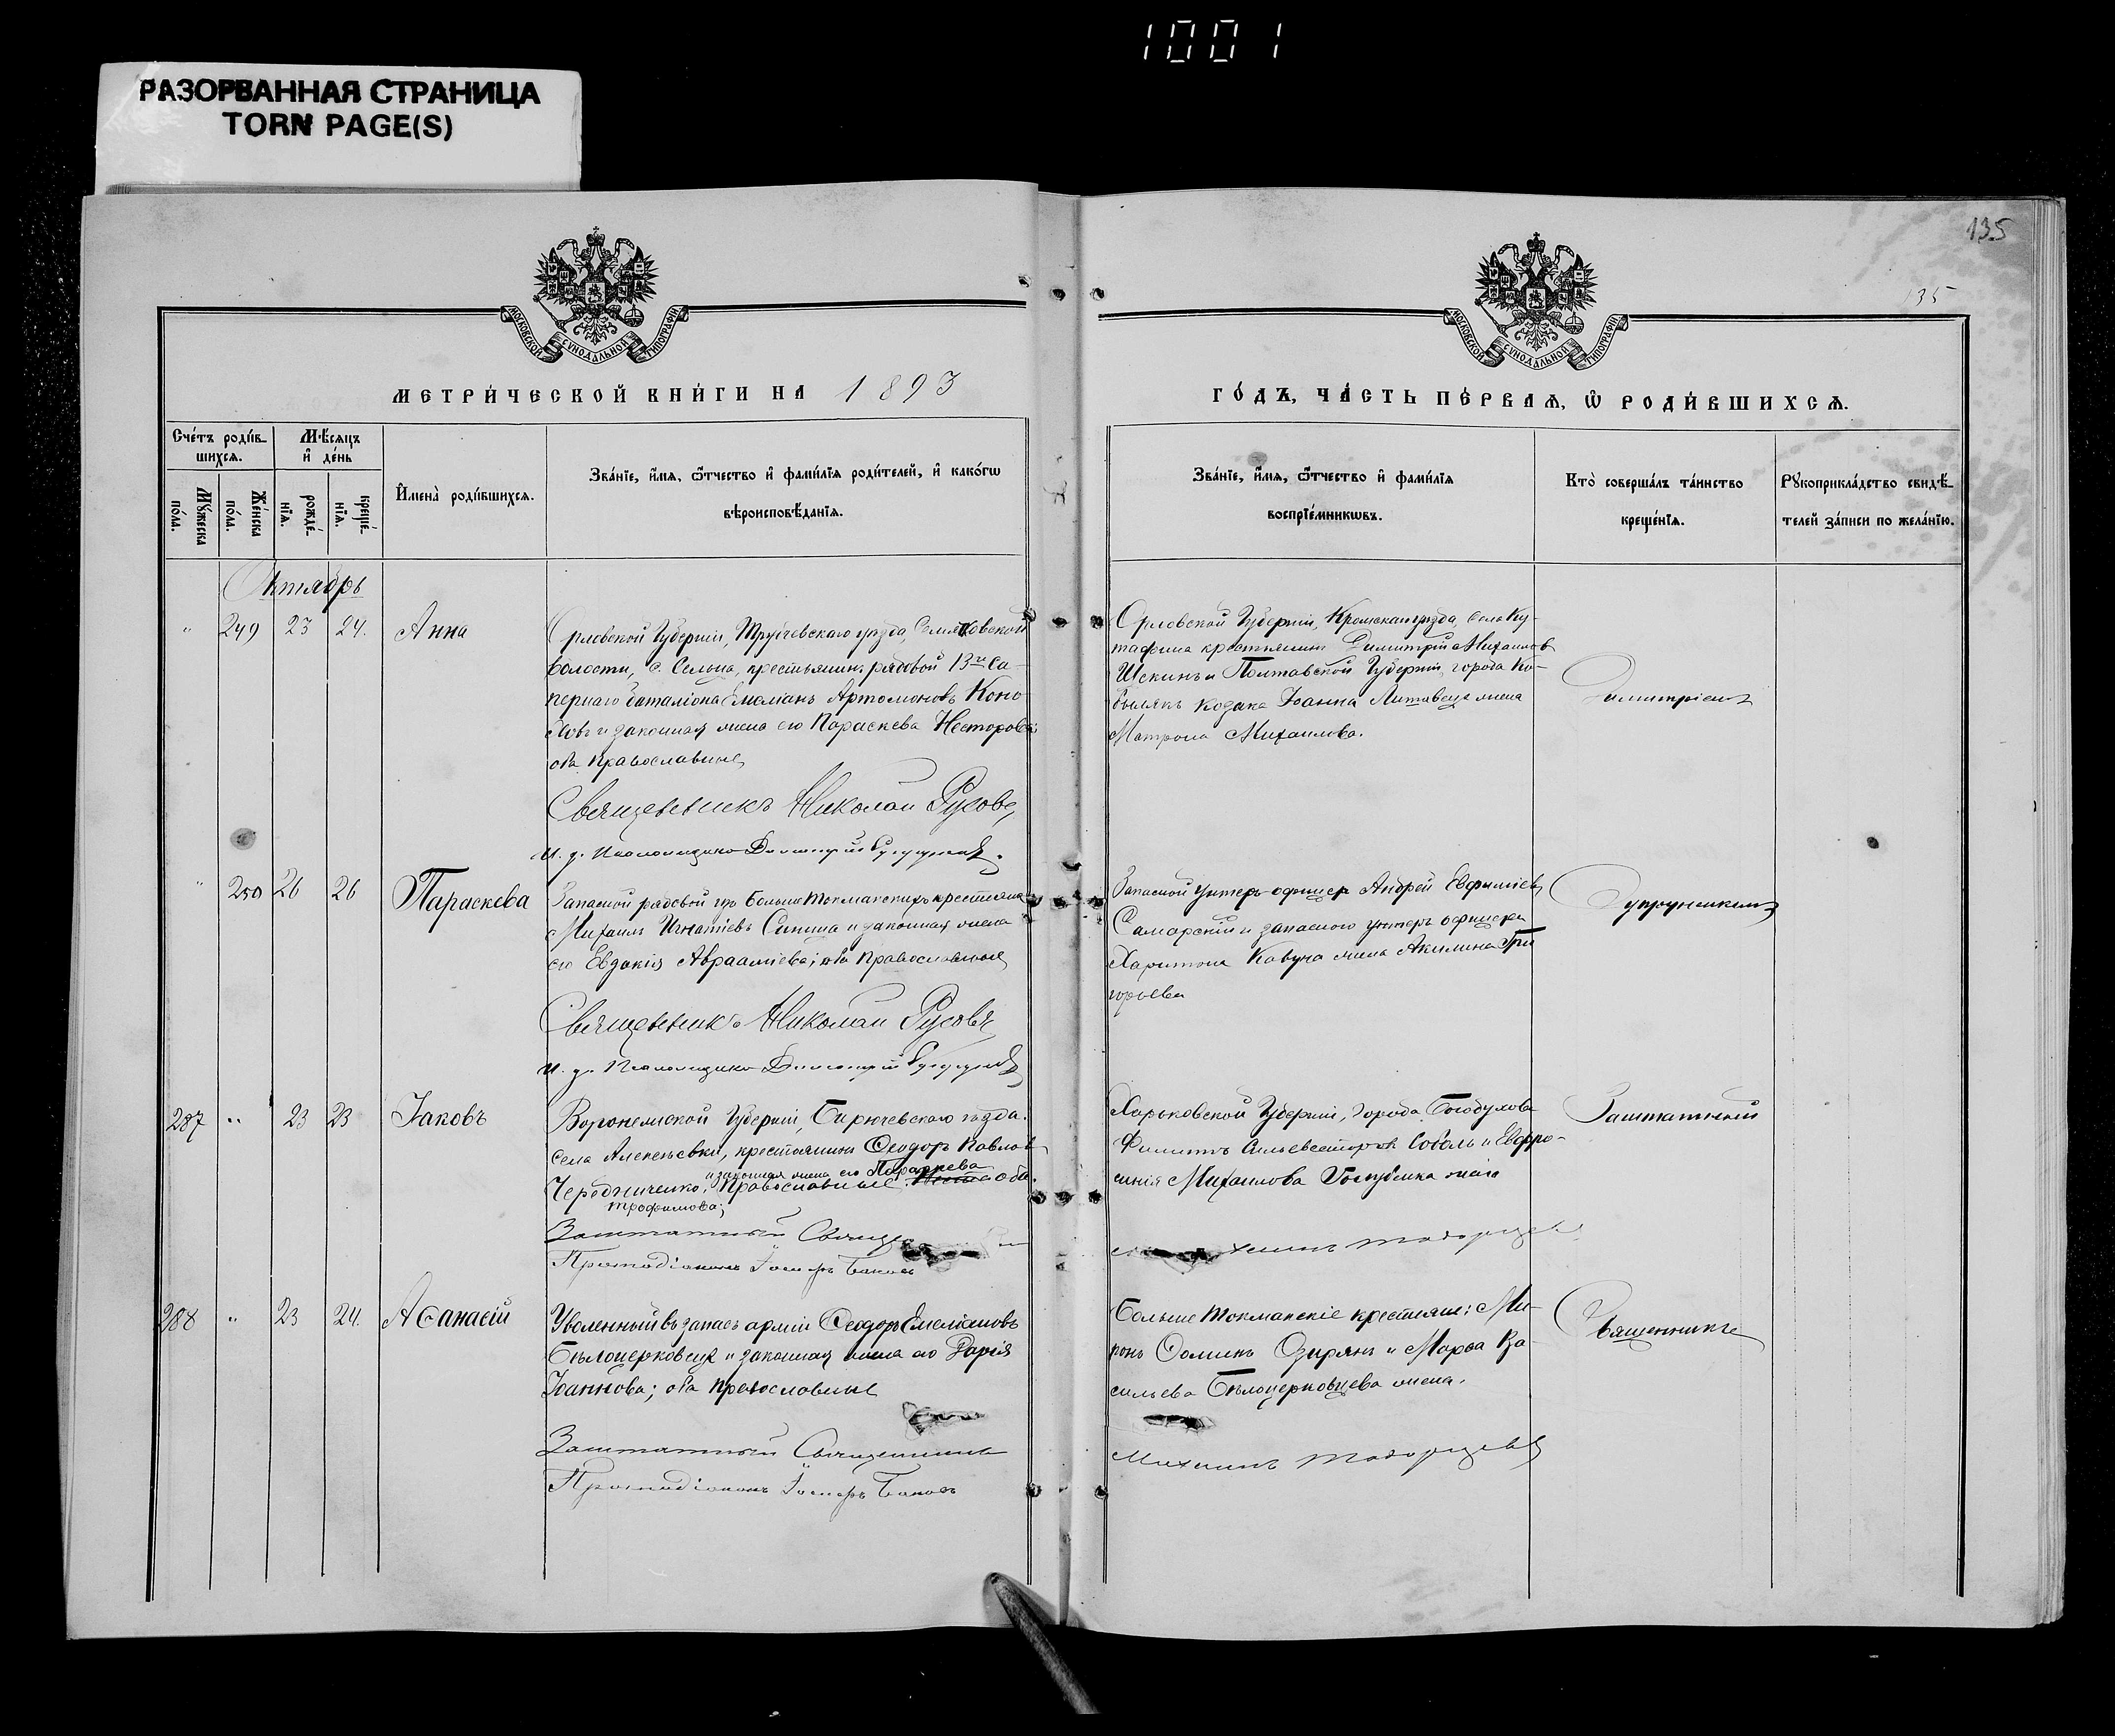 1001
РАЗОРВАННАЯ СТРАНИЦА
TORN PAGE(S)
135
135
МОСКОВСКОЙ СУНОДАЛЬНОЙ ТИПОГРАФІИ
МОСКОВСКОЙ СУНОДАЛЬНОЙ ТИПОГРАФІИ
МЕТРИ́ЧЕСКОЙ КНИ́ГИ НА 1893
ГО́ДЪ, ЧА́СТЬ ПЕ́РВАѦ, Ѡ҆ РОДИ́ВШИХСѦ.
Сче́тъ роди́в-
шихсѧ.
Мѣ́сяцъ
и҆ де́нь
Му́жеска
по́ла.
Же́нска
по́ла.
рожде́-
нїѧ.
креще́-
нїѧ.
И҆мена̀ роди́вшихсѧ.
Зва́нїе, и҆́мѧ, ѻ҆́тчество и҆ фами́лїѧ роди́телей, и҆ како́гѡ
вѣроисповѣ́данїѧ.
Зва́нїе, и҆́мѧ, ѻ҆́тчество и҆ фами́лїѧ
воспрїе́мникѡвъ.
Кто̀ соверша́лъ та́инство
креще́нїѧ.
Рꙋкоприкла́дство свидѣ́-
телей за́писи по жела́нїю.
Октябрь
" 249 23 24. Анна
Орловской Губерніи, Трубчевскаго уѣзда,
волости, с. Сельца, крестьянин, рядовой 13го Са-
пернаго баталіона Емеліанъ Артомоновъ Коно
и законная жена его Параскева Несторова;
оба православные
Священникъ Николай Русовъ
и. д. Псаломщика Димитрій
Орловской Губерніи, Кромскаго уѣзда, села Ку-
тафина крестьянинъ Димитрій Михаиловъ
Щекинъ и Полтавской Губерніи, города Ко-
белякъ козака Іоанна Литавеца жена
Матрона Михаилова.
" 250 26 26 Параскева
Запасной рядовой изъ Больше Токмакскихъ крестьянъ
Михаилъ Игнатіевъ Синица и законная жена
его Евдокія Авраамїева; оба православные
Священникъ Николай Русовъ
и. д. Псаломщика Димитрій
Запасной унтеръ-офицеръ Андрей Евфиміевъ
Самарскій и запасного унтеръ офицера
Харитона Кавуна жена Акилина Гри
горьева
287 " 23 23 Іаковъ
Воронежской Губерніи, Бирюченскаго уѣзда.
села Алексѣевки, крестьянинъ Ѳеодоръ Павлов
и законная жена его Параскева
Чередниченко, православные. оба.
Трофимова;
Заштатный
Протодіаконъ Баковъ
Харьковской Губерніи, города Богодухова
Филиппъ Сильвестровъ Соболь и Евфро-
синія Михаилова жена
Заштатный
288 " 23 24. Аѳанасій
Уволенный въ запасъ арміи Ѳеодоръ Емеліановъ
Бѣлоцерковецъ и законная жена его Дарія
Іоаннова; оба православные
Заштатный Священникъ
Протодіаконъ Баковъ
Больше Токмакские крестьяне: Ми-
ронъ Ѳоминъ Озирянъ и Марѳа Ва
сильева Бѣлоцерковцева жена.
Михаилъ
Священникъ